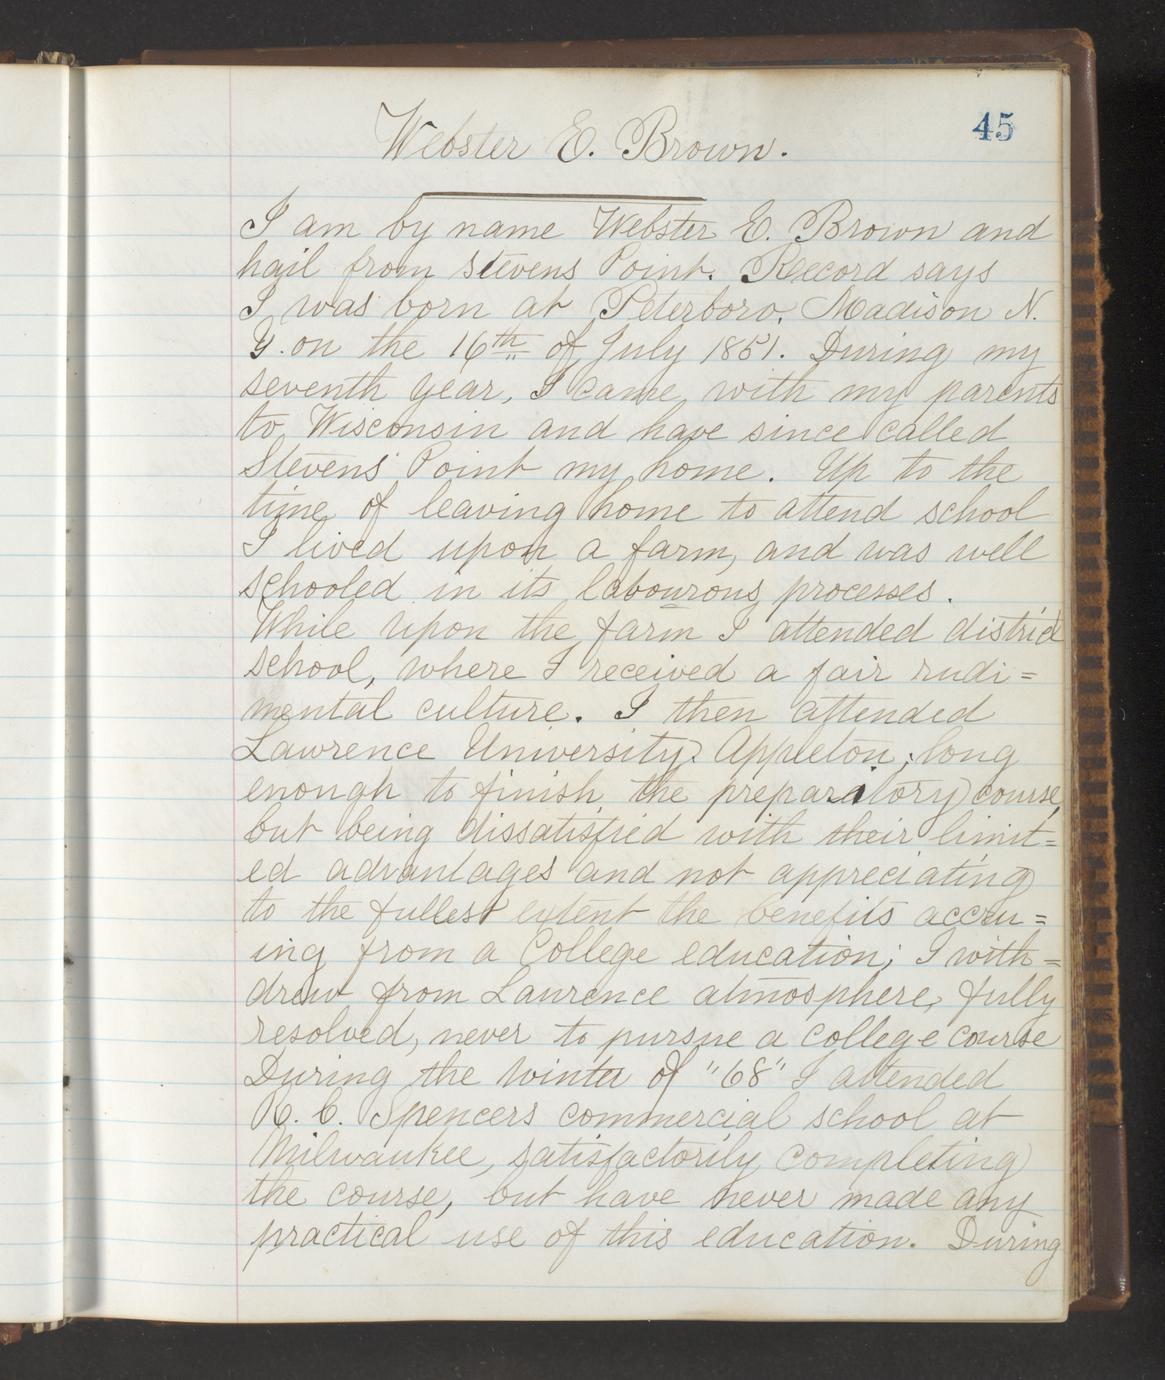 45
Webster E. Brown.
I am by name Webster E. Brown and
hail from Stevens Point. Record says
I was born at Peterboro, Madison N.
Y. on the 16th of July 1851. During my
seventh year, I came, with my parents
to Wisconsin and have since called
Stevens Point my home. Up to the
time of leaving home to attend school
I lived upon a farm, and was well
schooled in its labourous processes.
While upon the farm I attended district
school, where I received a fair rudi=
mental culture. I then attended
Lawrence University Appleton, long
enough to finish the preparatory course,
but being dissatisfied with their limit=
ed advantages and not appreciating
to the fullest extent the benefits accru=
ing from a College education; I with=
drew from Lawrence atmosphere, fully
resolved, never to pursue a College course
During the winter of "68" I attended
R. C. Spencers commercial school at
Milwaukee, satisfactorily completing
the course, but have never made any
practical use of this education. During